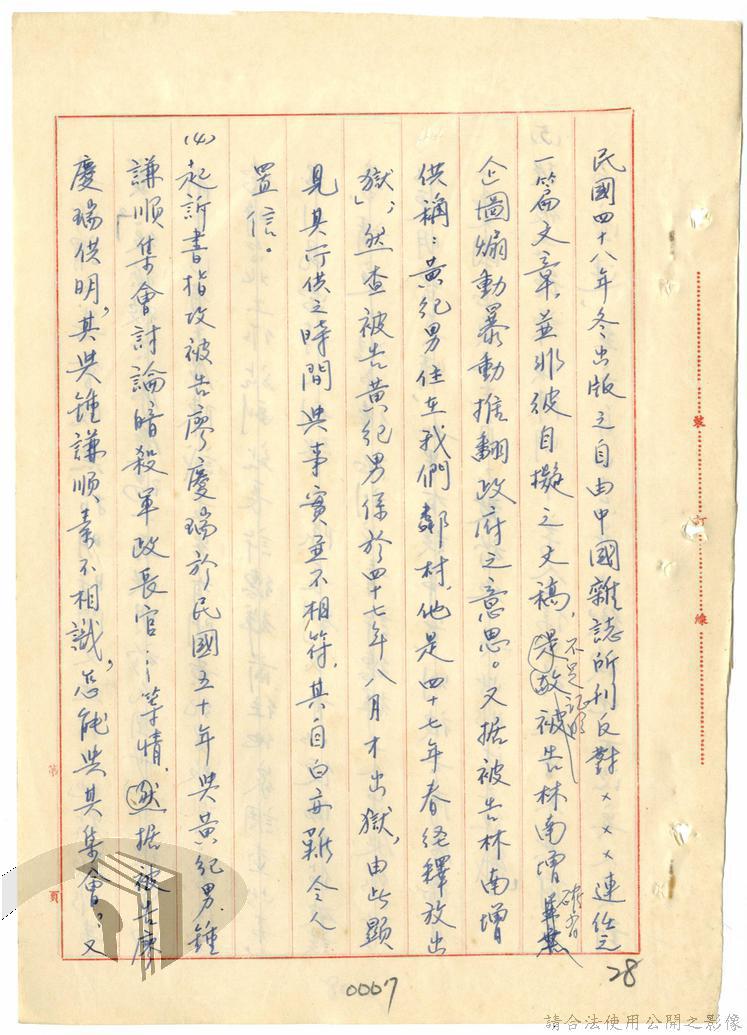 民國四十八年冬出版之自由中國雜誌所刊反對×××連任之
一篇文章，並非彼自擬之文稿，是故被告林南增並無
不足証明
確有
企圖煽動暴動推翻政府之意思。又据被告林南增
供稱：黃紀男住在我們鄰村，他是四十七年春經釋放出
獄」，然查被告黃紀男係於四十七年八月才出獄，由此顯
見其所供之時間與事實並不相符，其自白亦難令人
置信。
(4)起訴書指攻被告廖慶瑞於民國五十年與黃紀男、鍾
謙順集會討論暗殺軍政長官…等情，然据被告廖
慶瑞供明，其與鍾謙順，素不相識，怎能與其集會？又
裝
訂
線
第
頁
28
0007
請合法使用公開之影像